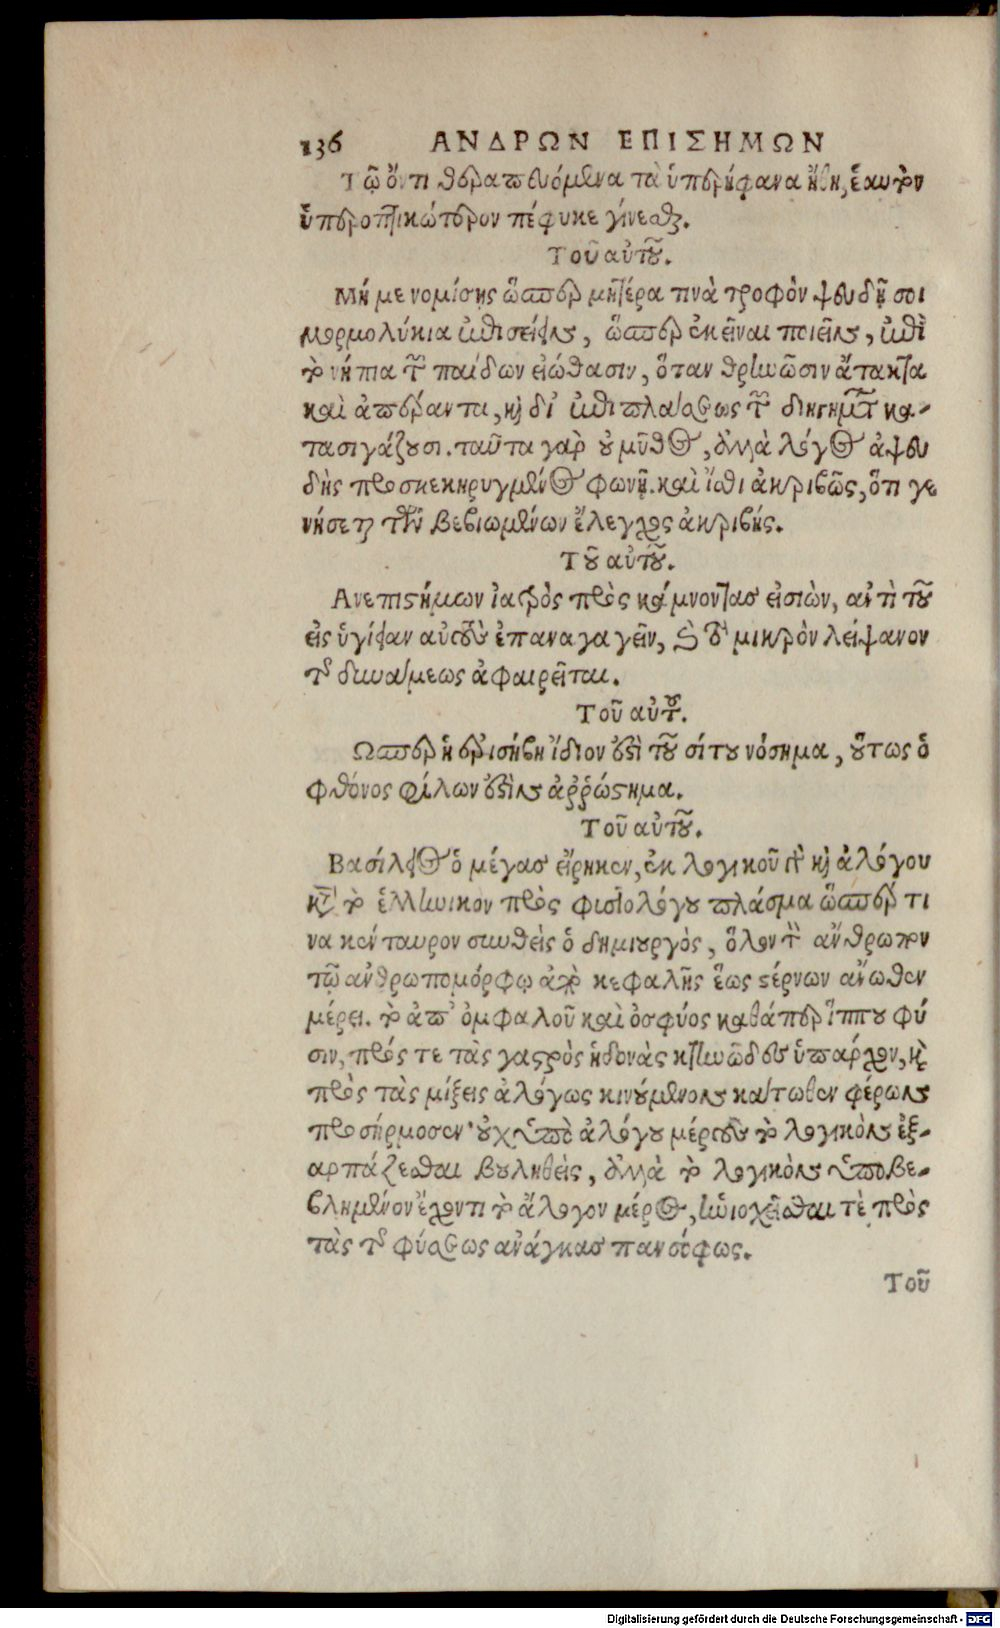 136 ΑΝΔΡΩΝ ΕΠΙΣΗΜΩΝ
Τῷ ὄντι θεραπευόμενα τὰ ὑπερήφανα ἤθη, ἑαυτῶν
ὑπεροπτικώτερον πέφυκε γίνεσθαι.
Τοῦ αὐτοῦ.
Μή με νομίσῃς ὥσπερ μητέρα τινὰ τροφὸν ψευδῆ σοι
μορμολύκια ἐπισείειν, ὥσπερ ἐκεῖναι ποιεῖν, ἐπὶ
τὰ νήπια τῶν παίδων εἰώθασιν, ὅταν θρηνῶσιν ἄτακτα
καὶ ἀπέραντα, καὶ δι' ἐπιπλάστως τῶν διηγημάτων κα-
τασιγάζουσι. ταῦτα γὰρ οὐ μῦθος, ἀλλὰ λόγος ἀψευ
δὴς προσκεκηρυγμένος φωνῇ. καὶ ἴσθι ἀκριβῶς, ὅτι γε
νήσεται τῶν βεβιωμένων ἔλεγχος ἀκριβής.
Τοῦ αὐτοῦ.
Ἀνεπιστήμων ἰατρὸς πρὸς κάμνοντας εἰσιὼν, ἀντὶ τοῦ
εἰς ὑγίειαν αὐτοὺς ἐπαναγαγεῖν, καὶ τὸ μικρὸν λείψανον
τῆς δυνάμεως ἀφαιρεῖται.
Τοῦ αὐτοῦ.
Ὥσπερ ἡ ἐρισήβη ἴδιον ἐστὶ τοῦ σίτου νόσημα, οὕτως ὁ
φθόνος φίλων ἐστὶν ἀῤῥώστημα.
Τοῦ αὐτοῦ.
Βασίλειος ὁ μέγας εἴρηκεν, ἐκ λογικοῦ τε καὶ ἀλόγου
κατὰ τὸ ἑλληνικὸν πρὸς φυσιολόγου πλάσμα ὥσπερ τι
να κένταυρον συνθεὶς ὁ δημιουργὸς, ὅλον τὸν ἄνθρωπον
τῷ ἀνθρωπομόρφῳ ἀπὸ κεφαλῆς ἕως στέρνων ἄνωθεν
μέρει. τὸ ἀπ' ὀμφαλοῦ καὶ ὀσφύος καθάπερ ἵππου φύ
σιν, πρός τε τὰς γαστρὸς ἡδονὰς κτηνῶδες ὑπάρχον, καὶ
πρὸς τὰς μίξεις ἀλόγως κινούμενον κάτωθεν φέρων
προσήρμοσεν· οὐχ ὑπὸ ἀλόγου μέρους τὸ λογικὸν ἐξ-
αρπάζεσθαι βουληθεὶς, ἀλλὰ τὸ λογικὸν ὑποβε-
βλημένον ἔχοντι τὸ ἄλογον μέρος, ἡνιοχεῖσθαι τὲ πρὸς
τὰς τῆς φύσεως ἀνάγκας πανσόφως.
Τοῦ
Digitalisierung gefördert durch die Deutsche Forschungsgemeinschaft - DFG